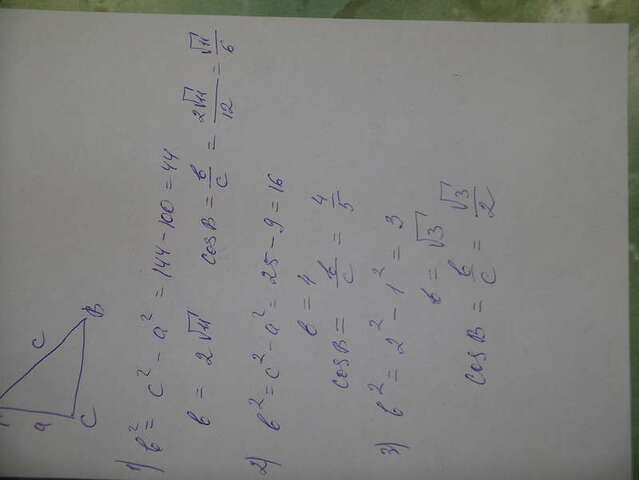 c
B
a
C
1) b² = c² - a² = 144 - 100 = 44
b = 2√11 cos B = b/c = 2√11/12 = √11/6
2) b² = c² - a² = 25 - 9 = 16
b = 4
cos B = b/c = 4/5
3) b² = 2² - 1² = 3
b = √3
cos B = b/c = √3/2